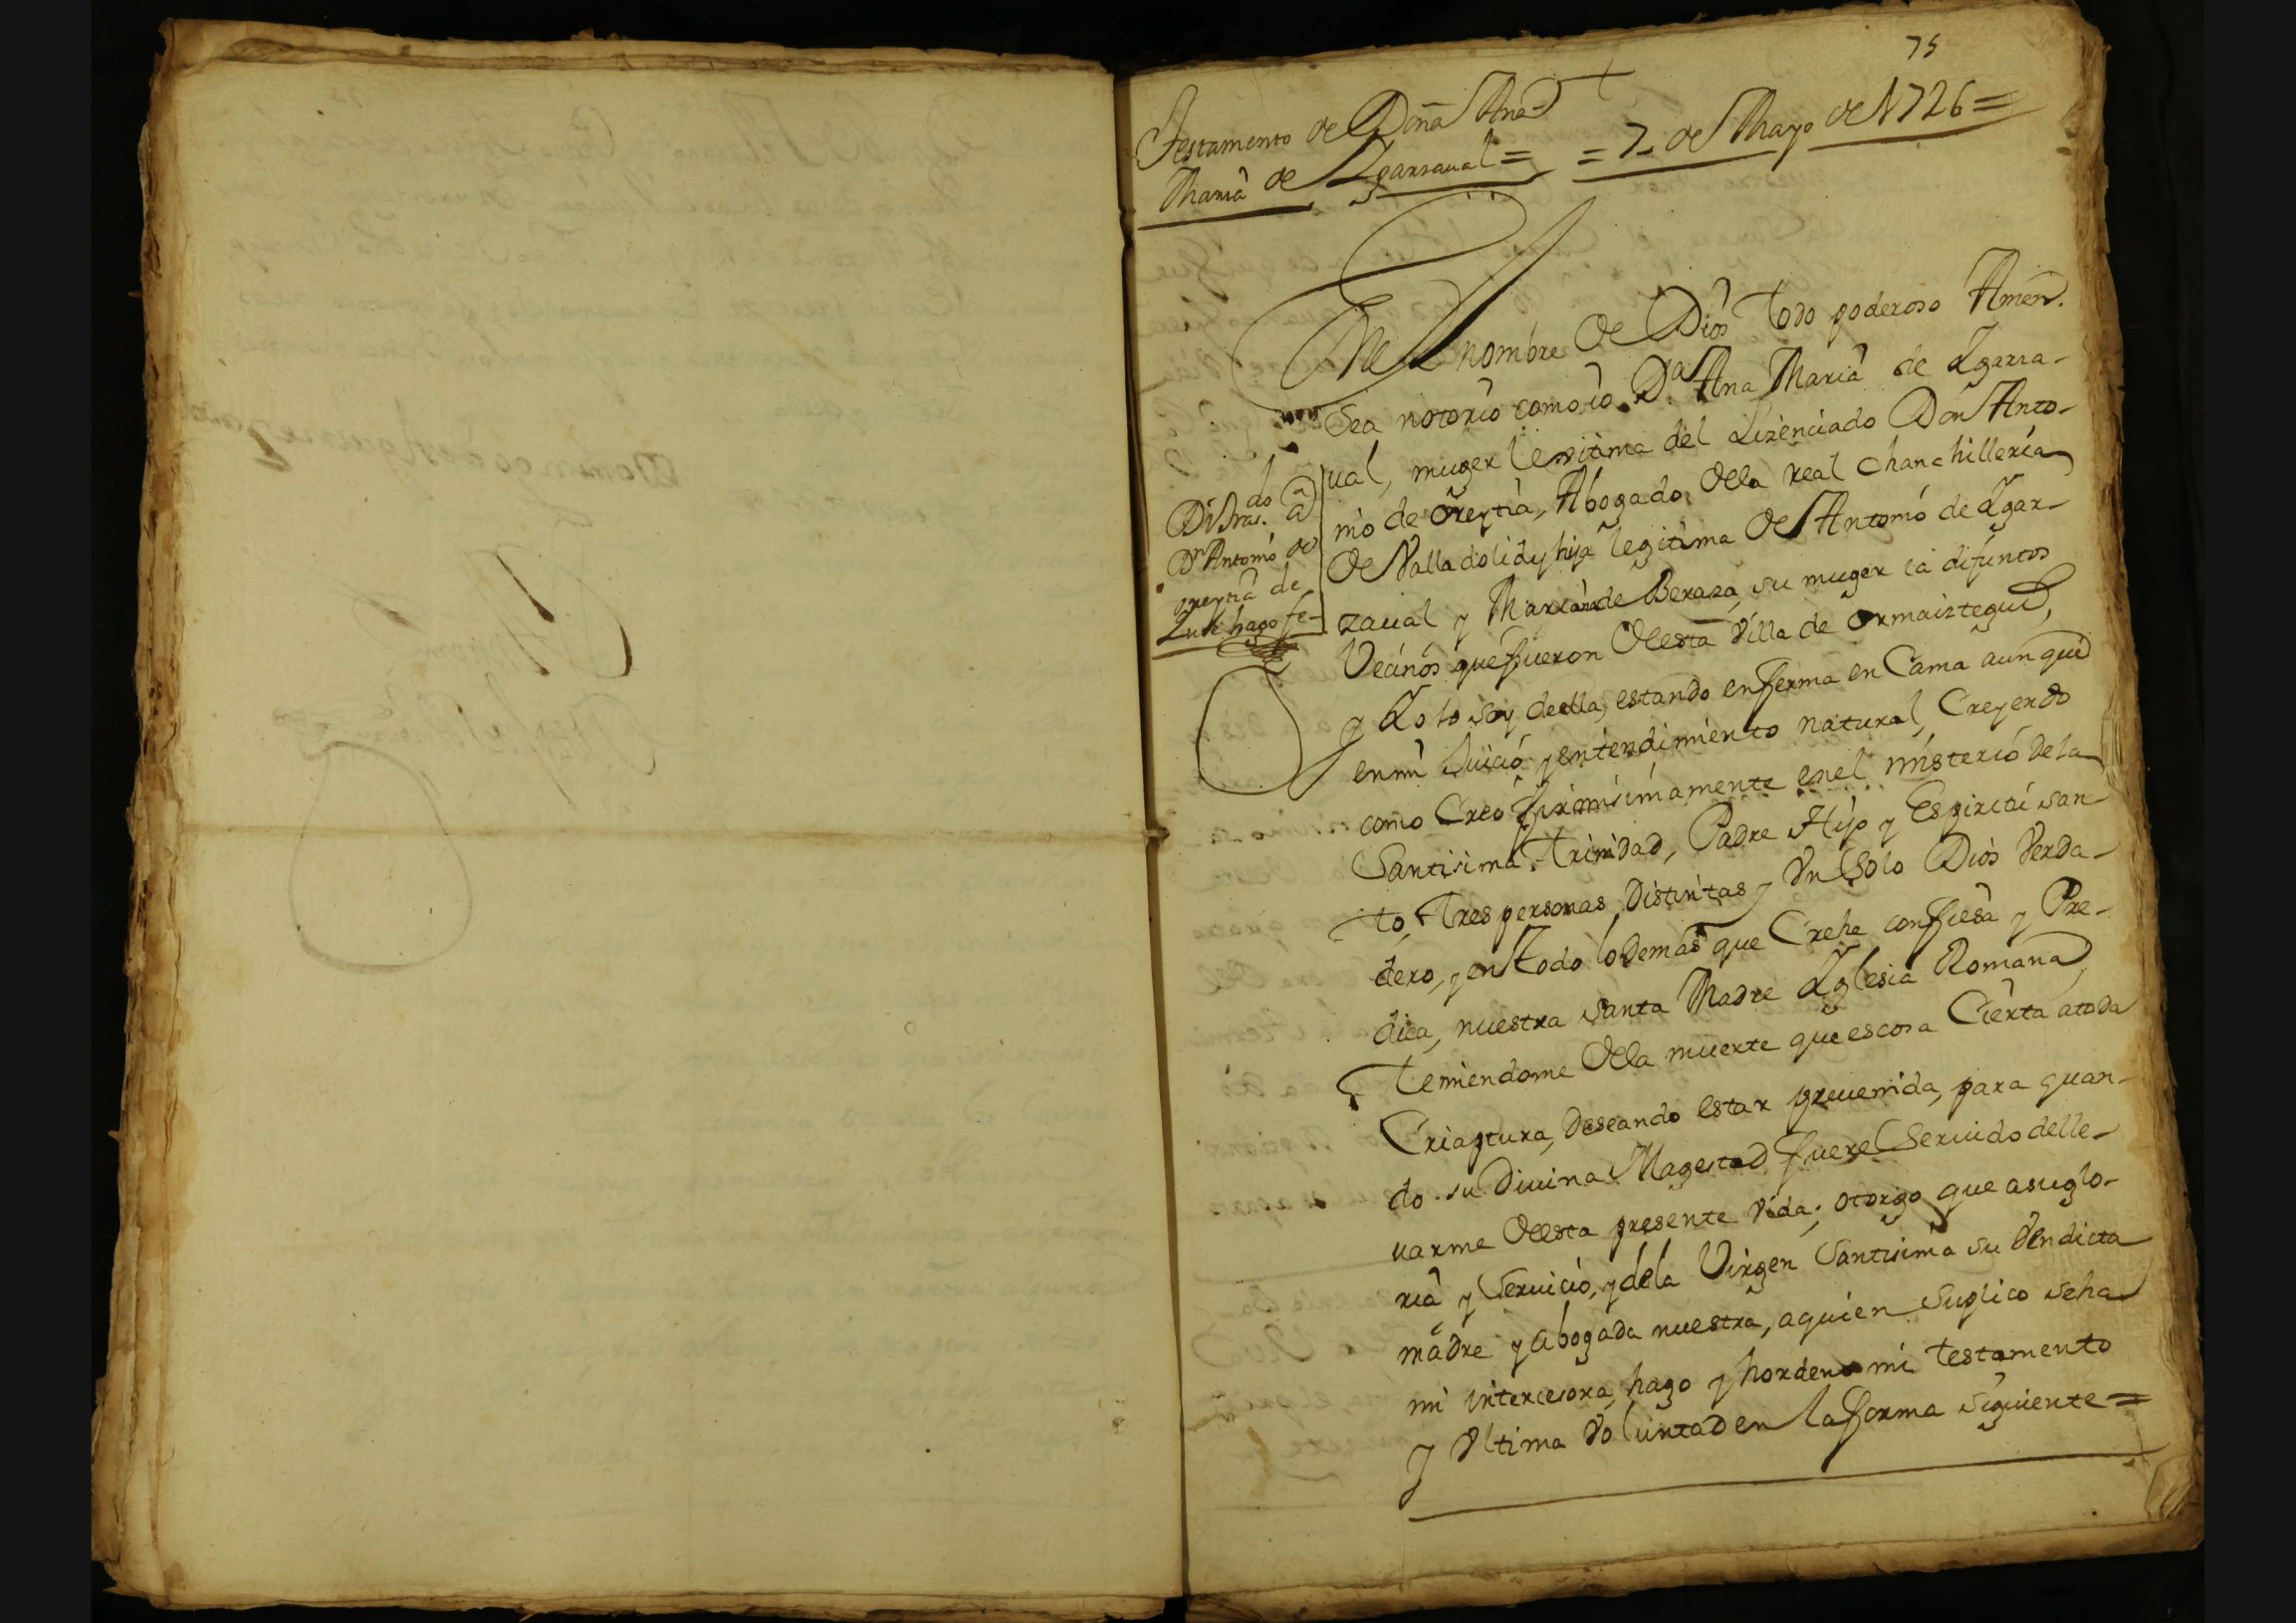 75
Testamento de Doña Ana
Maria de Ygarraual =
= 7 de Mayo de 1726 =
En el nombre de Dios todo poderoso Amen.
Sea notorio como io Dª Ana Maria de Ygarra-
ual, muger lexitima del Lizenciado Don Anto-
nio de Oreytia, Abogado dela real chanchilleria
de Valladolid y hija legitima de Antonio de Ygar-
zaual y Mariana de Beraza, su muger ia difuntos
Vecinos que fueron desta Villa de Ormaiztegui,
y Yo lo soy de ella, estando enferma en Cama aunque
en mi Juicio y entendimiento natural, Creyendo
como Creo firmisimamente en el misterio de la
Santisima Trinidad, Padre Hijo y Espiritu san-
to, tres personas distintas y Un solo Dios Verda-
dero, y en todo lo demas que Crehe confiesa y Pre-
dica, nuestra santa Madre Yglesia Romana,
Temiendome dela muerte que es cosa Cierta a toda
Criaptura, deseando estar preuenida, para quan-
do su Diuina Magestad fuere Seruido de lle-
uarme desta presente Vida; otorgo que a su glo-
ria y Seruicio, y de la Virgen Santisima su Vendicta
madre y abogada nuestra, a quien suplico seha
mi intercesora, hago y hordeno mi testamento
y Vltima Voluntad en la forma siguiente =
do
Dn Antonio de
oreytia de
que hago fe-